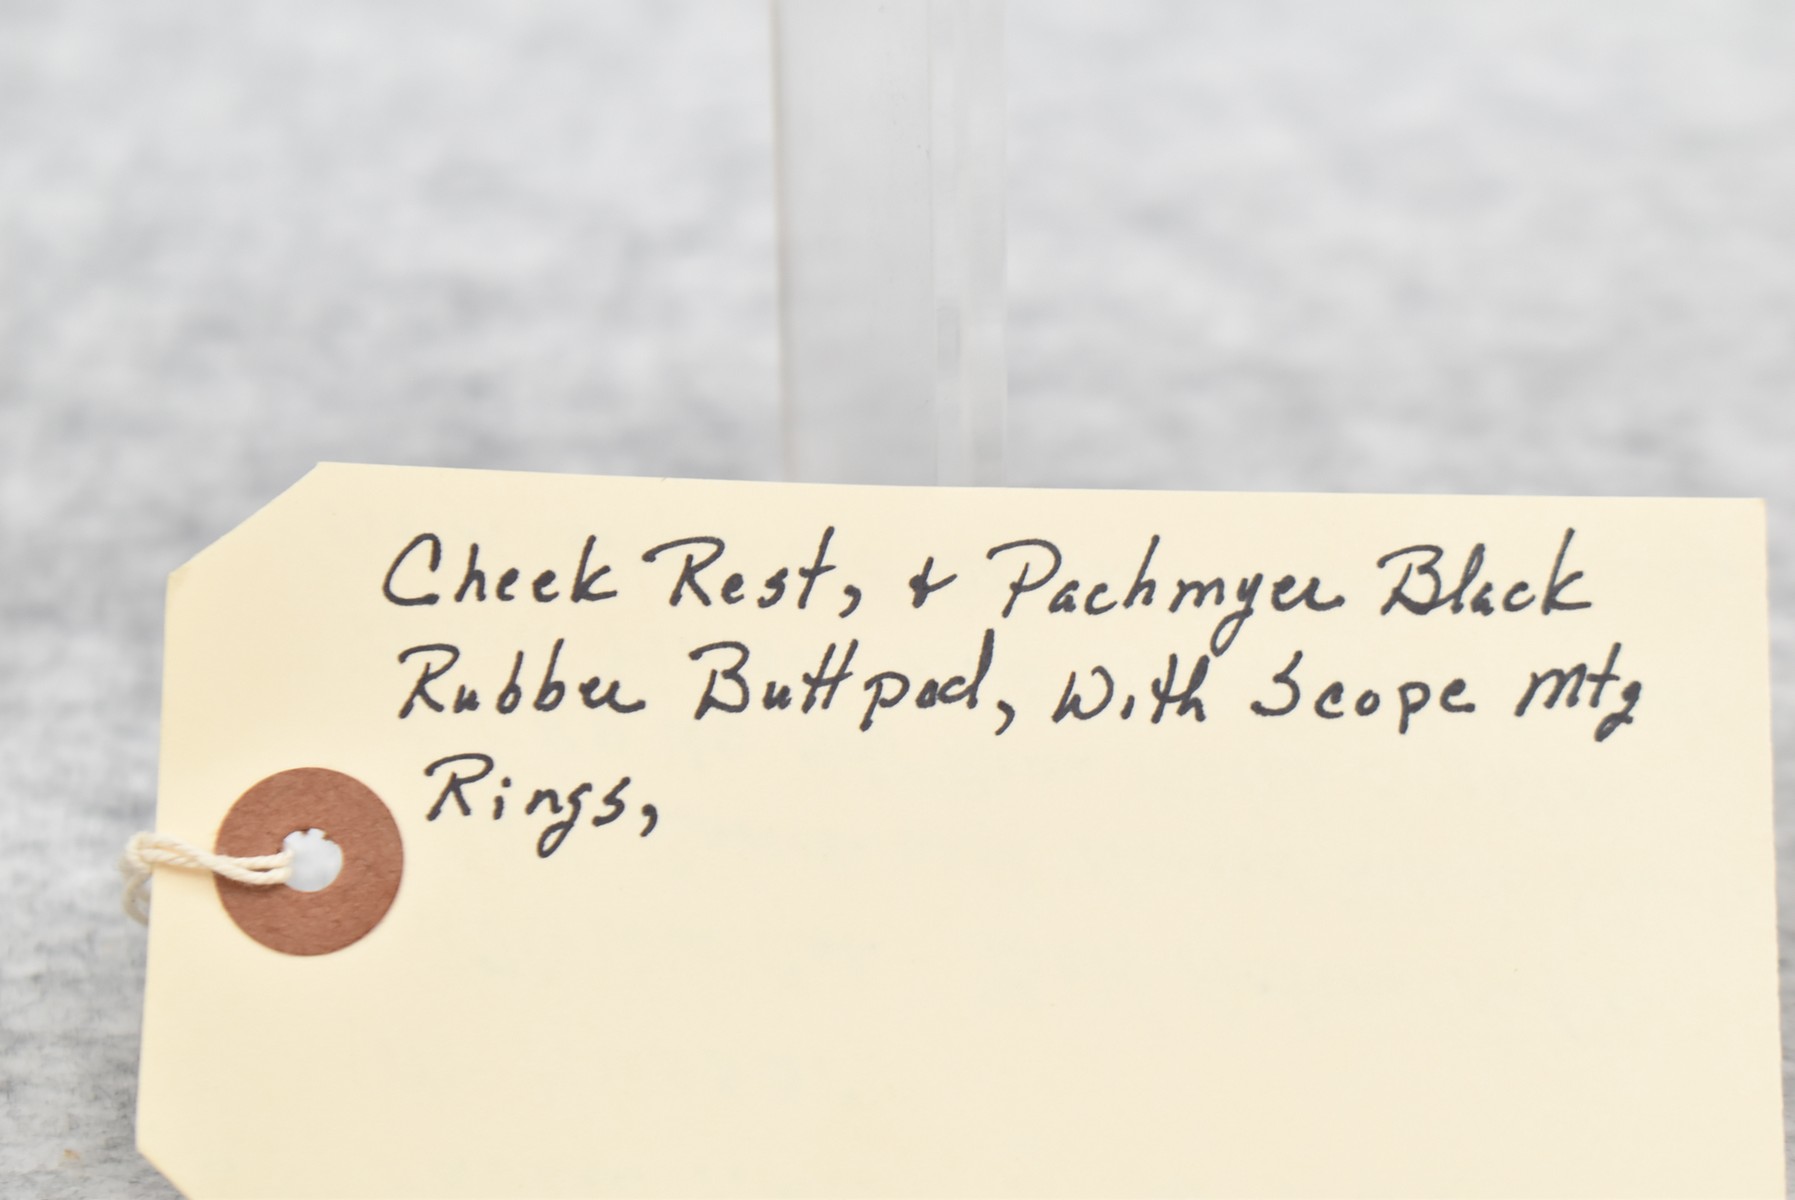 Cheek Rest, & Pachmyer Black
Rubber Buttpad, With Scope Mtg
Rings,